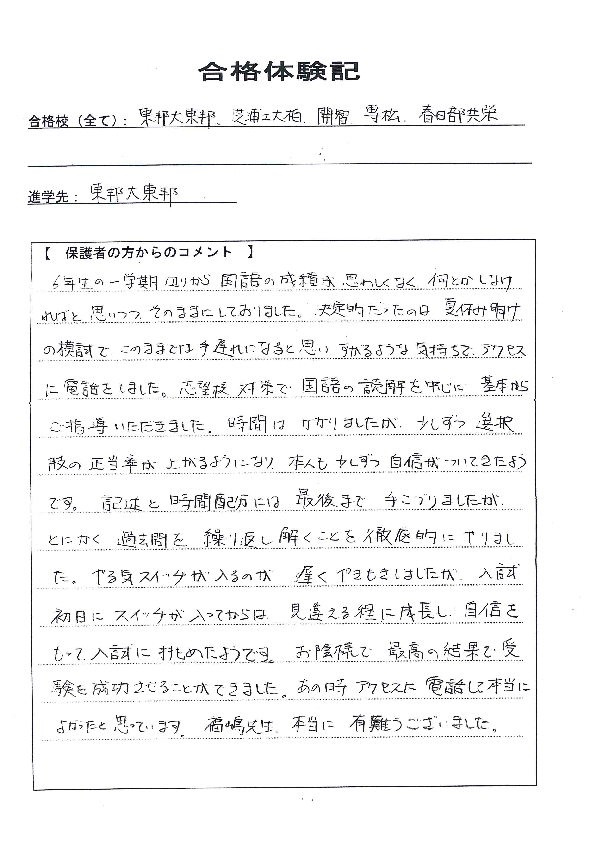 合格体験記
合格校（全て）： 東邦大東邦、芝浦工大柏、開智 専松、春日部共栄
進学先： 東邦大東邦
【 保護者の方からのコメント 】
6年生の一学期辺りから 国語の成績が思わしくなく 何とかしなけ
ればと 思いつつ、そのままにしておりました。決定的だったのは 夏休み明け
の模試で このままでは手遅れになると思い すがるような気持ちで、アクセス
に電話をしました。志望校対策で 国語の読解を中心に 基本から
ご指導いただきました。時間は かかりましたが、少しずつ 選択
肢の正当率が上がるようになり 本人も少しずつ 自信がついてきたよう
です。 記述と時間配分には 最後まで 手こずりましたが、
とにかく 過去問を 繰り返し解くことを徹底的に やりまし
た。やる気スイッチが入るのが 遅く やきもきしましたが、入試
初日に スイッチが入ってからは 見違える程に成長し、自信を
もって、入試に 打ちこめたようです。 お陰様で 最高の結果で受
験を成功させることができました。あの時 アクセスに 電話して本当に
よかったと思っています。 嶋先生、本当に 有難うございました。